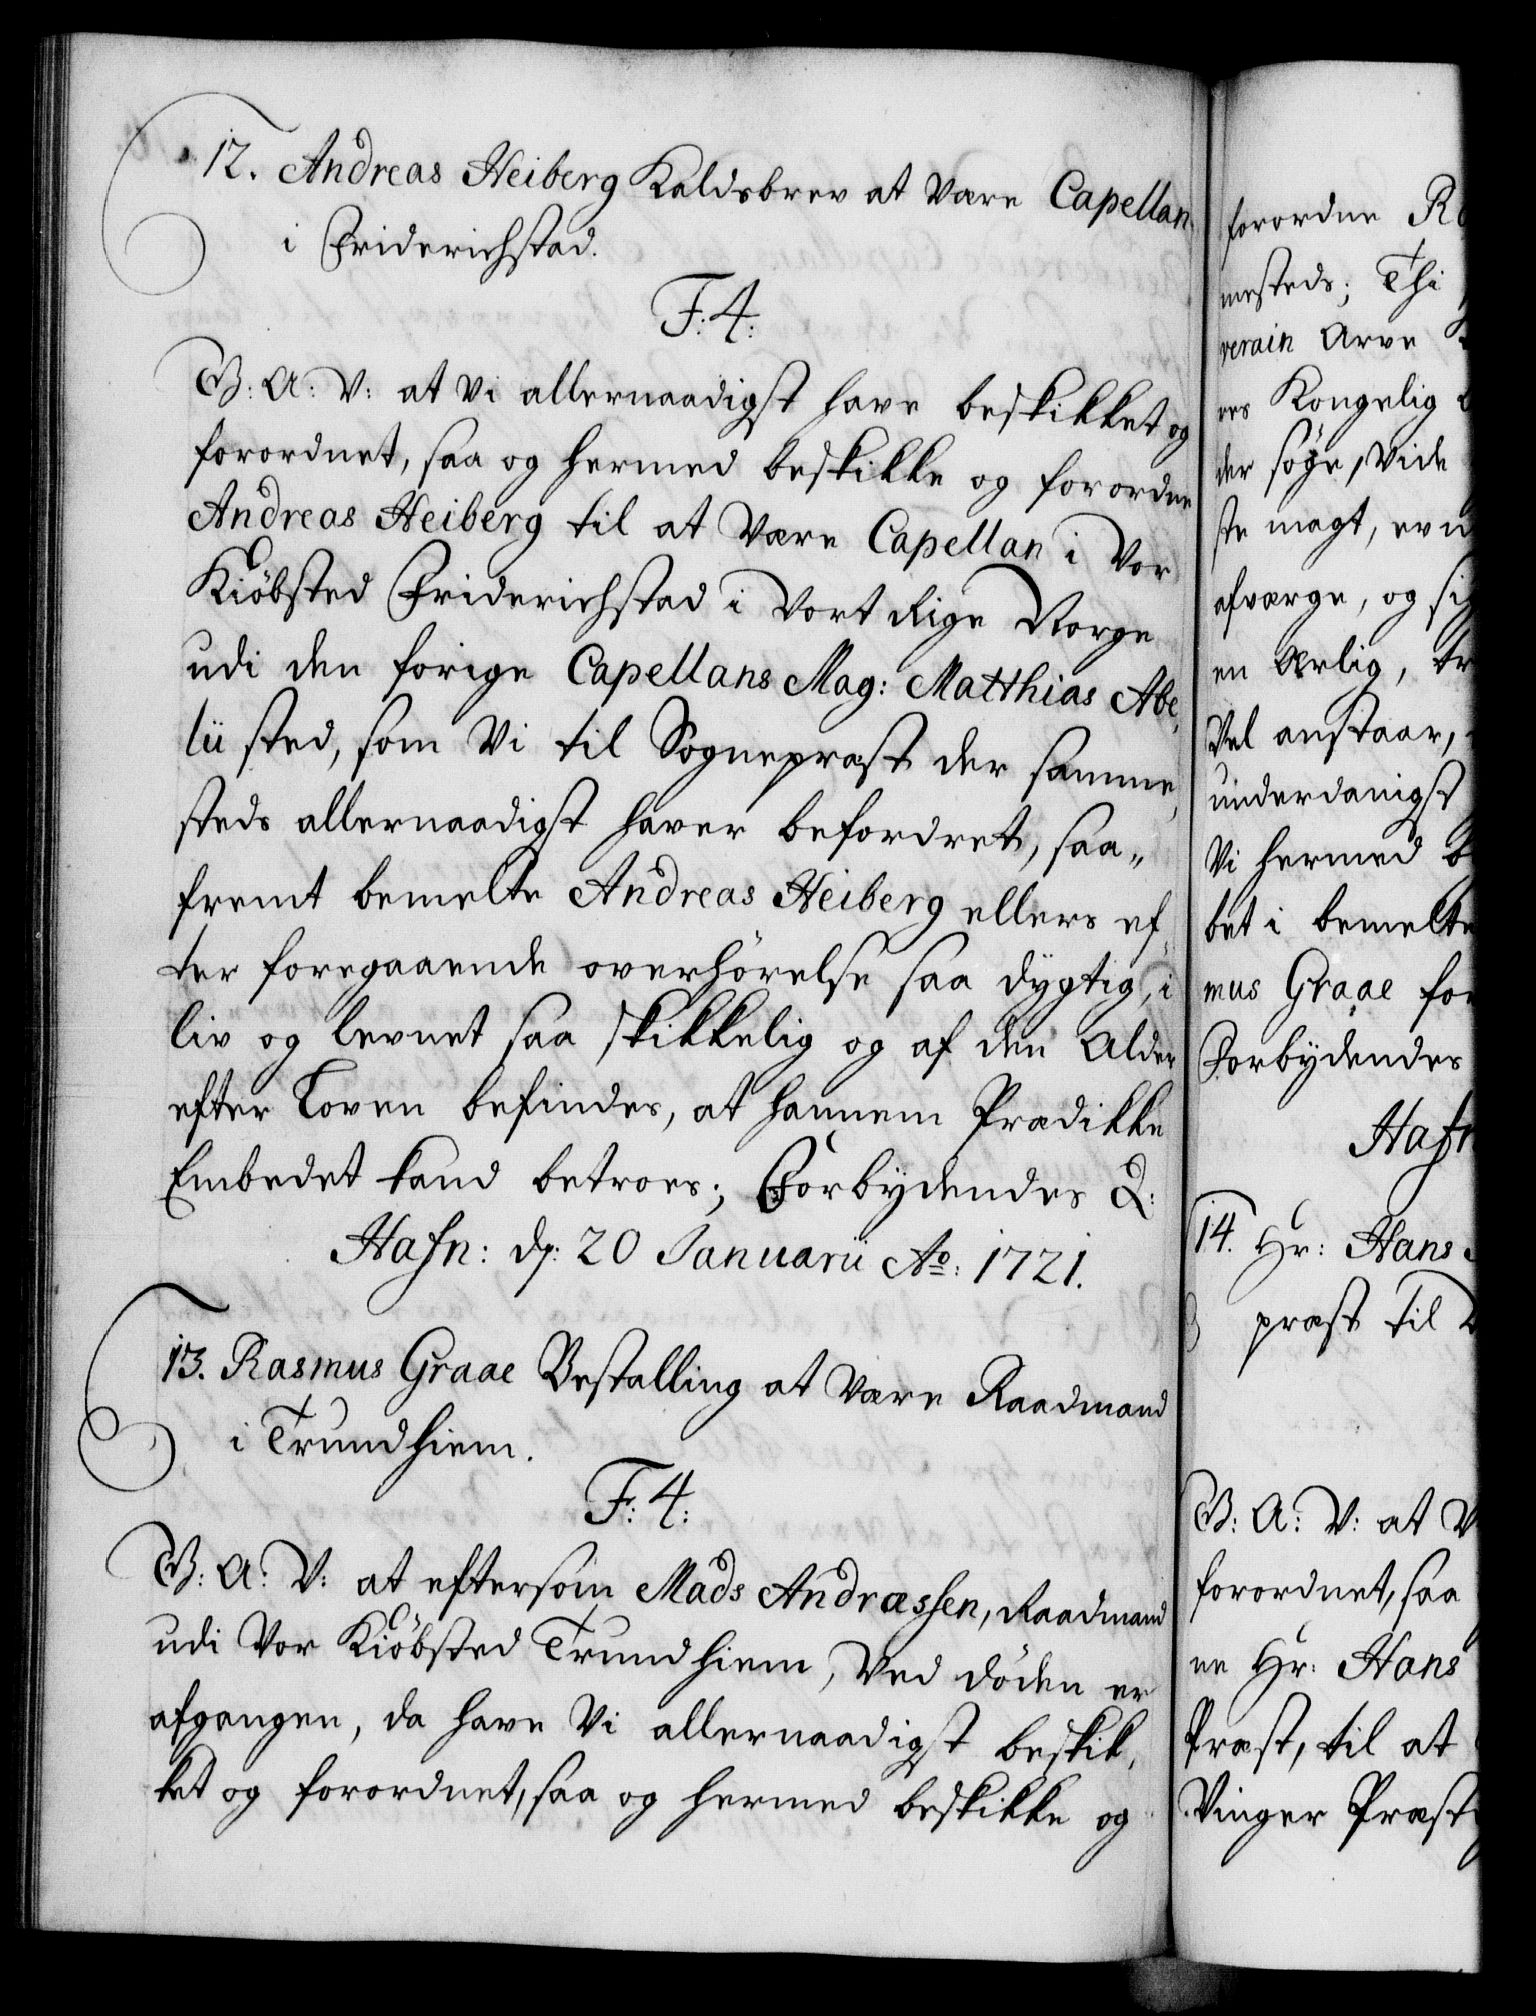 12. Andreas Heiberg Kaldsbrev at være Capellan
i Friderichstad.
F: 4:
G: A: V: at Vi allernaadigst have beskikket og
forordnet, saa og hermed beskikke og forordne
Andreas Heiberg til at være Capellan i Vor
Kiöbsted Friderichstad i Vort Rige Norge
udi den forige Capellans Mag: Matthias Abe,
lii sted, som Vi til Sognepræst der samme,
steds allernaadigst haver befordret, saa„
fremt bemelte Andreas Heiberg ellers ef,
ter foregaaende overhörelse saa dygtig, i
liv og levnet saa skikkelig og af den Alder
efter Loven befindes, at hannem Prædikke
Embedet kand betroes; Forbydendes &:
Hafn: d: 20 Januarii Ao: 1721.
13. Rasmus Graae Bestalling at være Raadmand
i Trundhiem.
F: 4:
G: A: V: at eftersom Mads Andræssen, Raadmand
udi Vor Kiöbsted Trundhiem, Ved döden er
afgangen, da have Vi allernaadigst beskik,
ket og forordnet, saa og hermed beskikke og
forordne
mesteds; Thi
verain Arve
res Kongelig
der söge, Vide
ste magt, evn
afværge, og
en ærlig, tr
Vel anstaar,
underdanigst
Vi hermed
bet i bemelte
mus Graae for
Forbydendes
Hafn
14. Hr: Hans
præst til
G: A: V: at V
forordnet, saa
ne Hr: Hans
Præst, til at
Vinger Præst